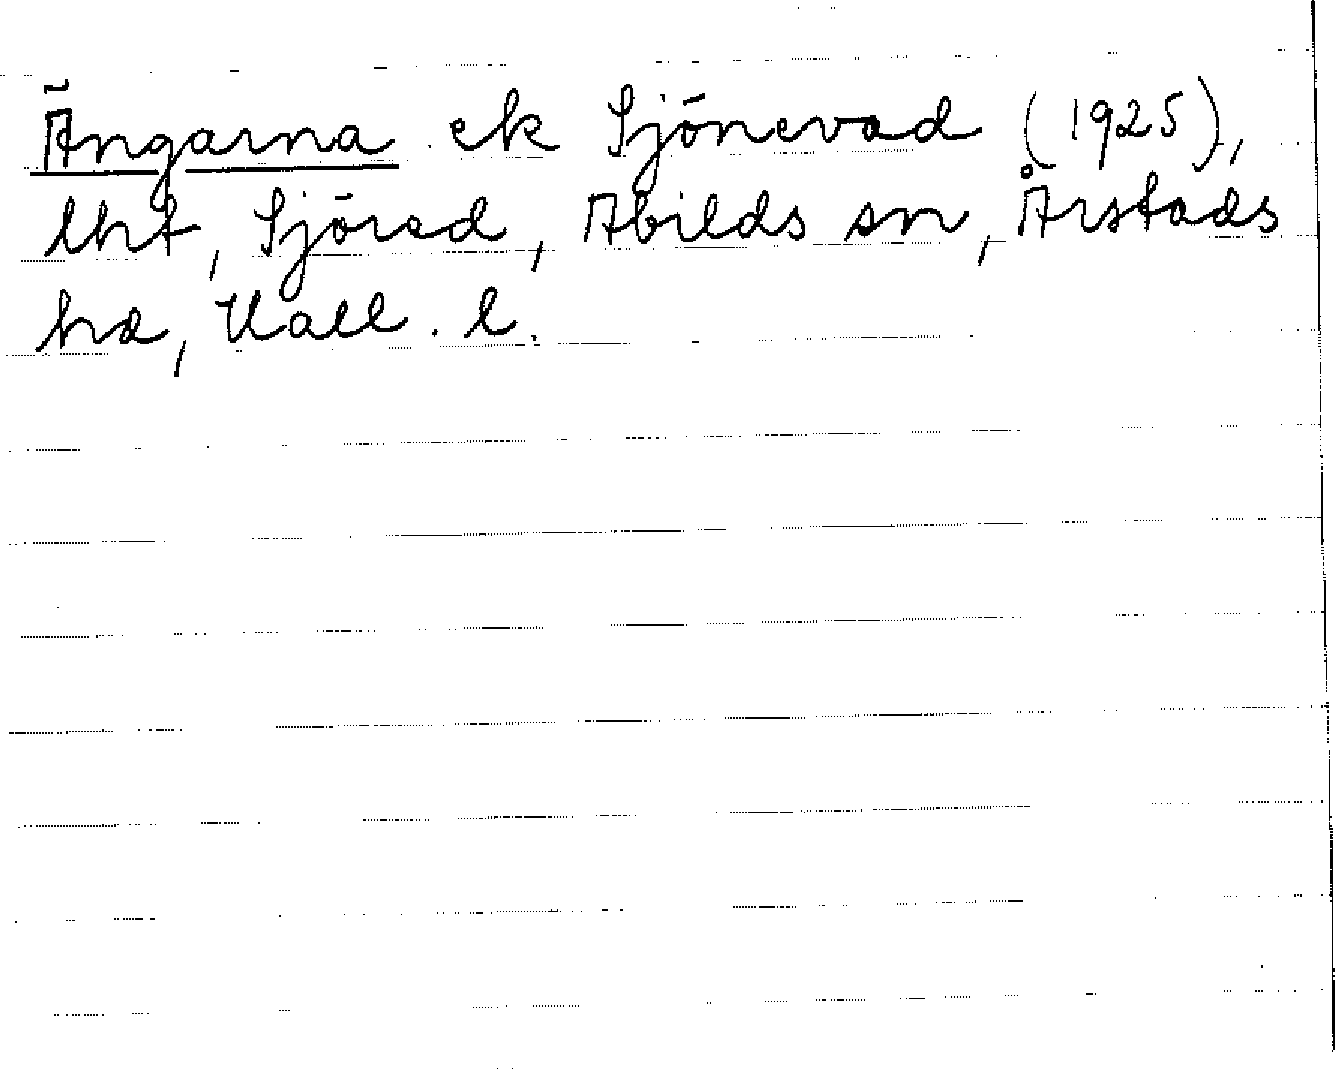 Ängarna ek Sjönevad (1925),
lht, Sjörad, Abilds sn, Årstads
hd, Hall. l.